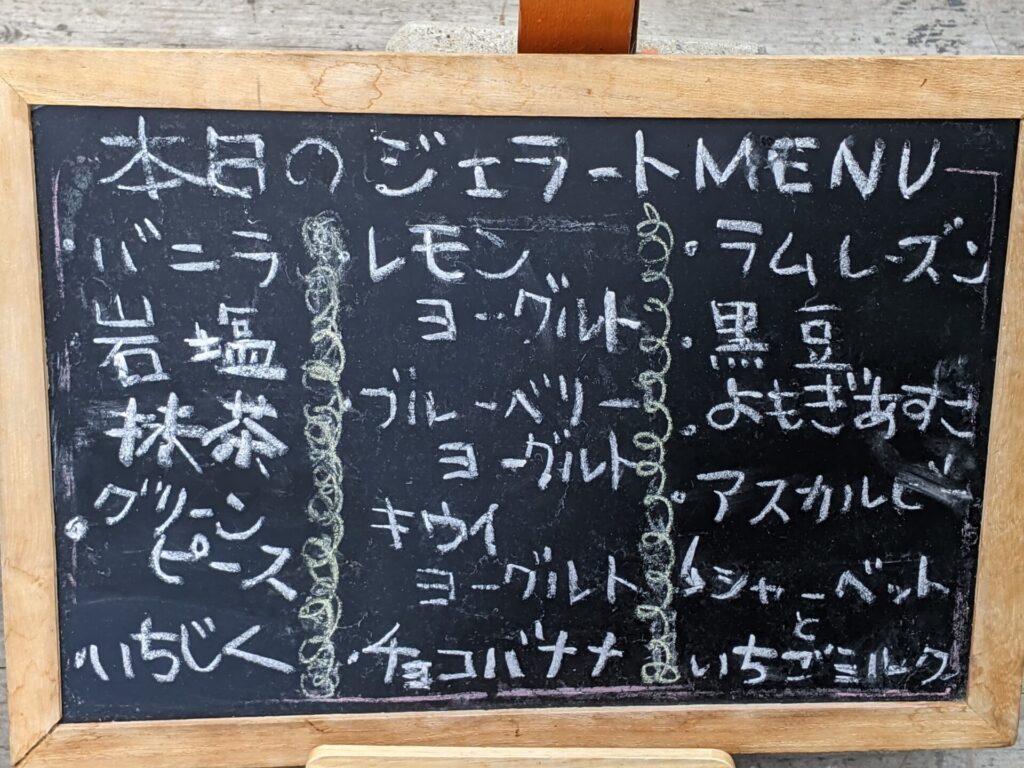 本日のジェラートMENU
・バニラ
岩塩
抹茶
・グリーン
ピース
・いちじく
・レモン
ヨーグルト
・ブルーベリー
ヨーグルト
キウイ
ヨーグルト
・チョコバナナ
・ラムレーズン
・黒豆
・よもぎあずき
・アスカルビー
シャーベット
と
・いちごミルク